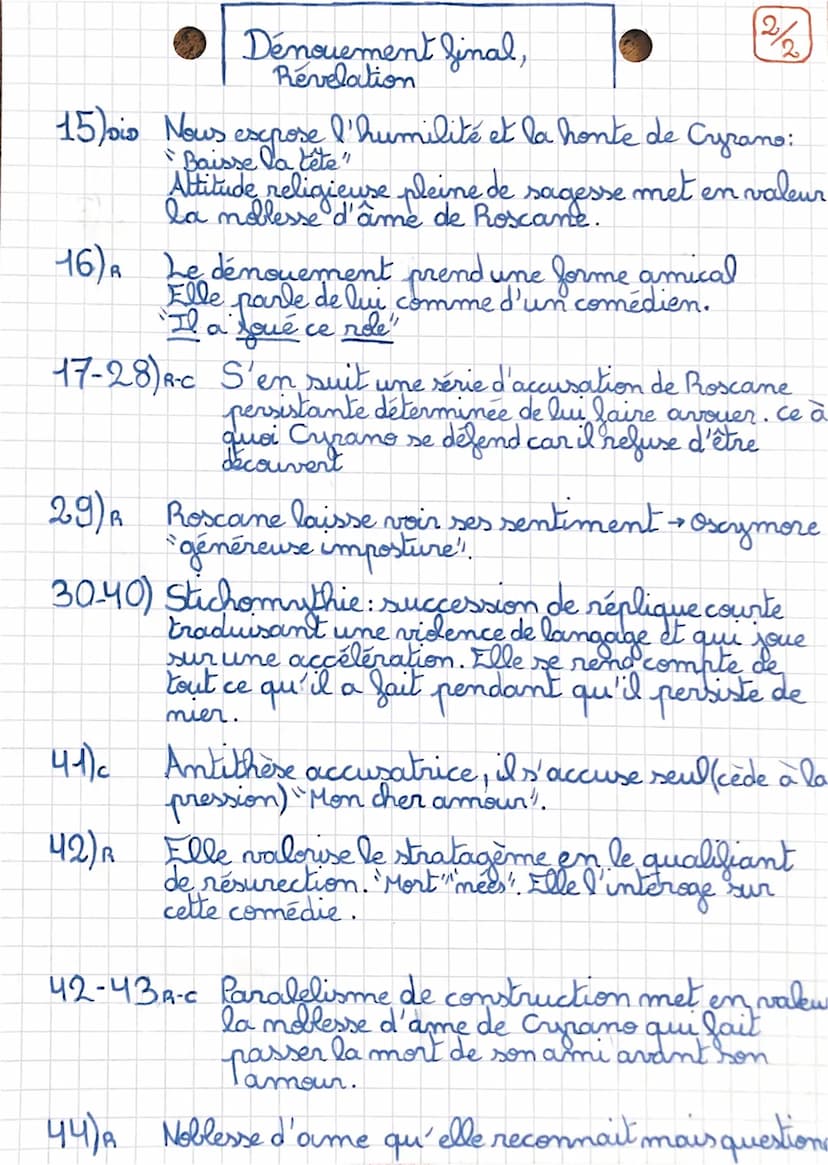 2/2
Dénouement final,
Révélation
15) DID Nous expose l'humilité et la honte de Cyrano:
"Baisse la tête"
Attitude religieuse pleine de sagesse met en valeur
la noblesse d'âme de Roscane.
16) R Le dénouement prend une forme amical
Elle parle de lui comme d'un comédien.
"Il a joué ce role"
17-28) R-C S'en suit une série d'accusation de Roscane
persistante déterminée de lui faire avouer. ce à
quoi Cyrano se défend car il refuse d'être
découvert
29) R Roscane laisse voir ses sentiment → Oscymore
"généreuse imposture".
30-40) Stichomythie: succession de réplique courte
traduisant une violence de langage et qui joue
sur une accélération. Elle se rend compte de
tout ce qu'il a fait pendant qu'il persiste de
nier.
41) C Antithèse accusatrice, il s'accuse seul (cède à la
pression) "Mon cher amour".
42) R Elle valorise le stratagème en le qualifiant
de résurection. "Mort" "nées". Elle l'interoge sur
cette comédie.
42-43 R-C Paralelisme de construction met en valeu
la noblesse d'âme de Cyrano qui fait
passer la mort de son ami avant son
amour.
44) R Noblesse d'ame qu'elle reconnait mais question